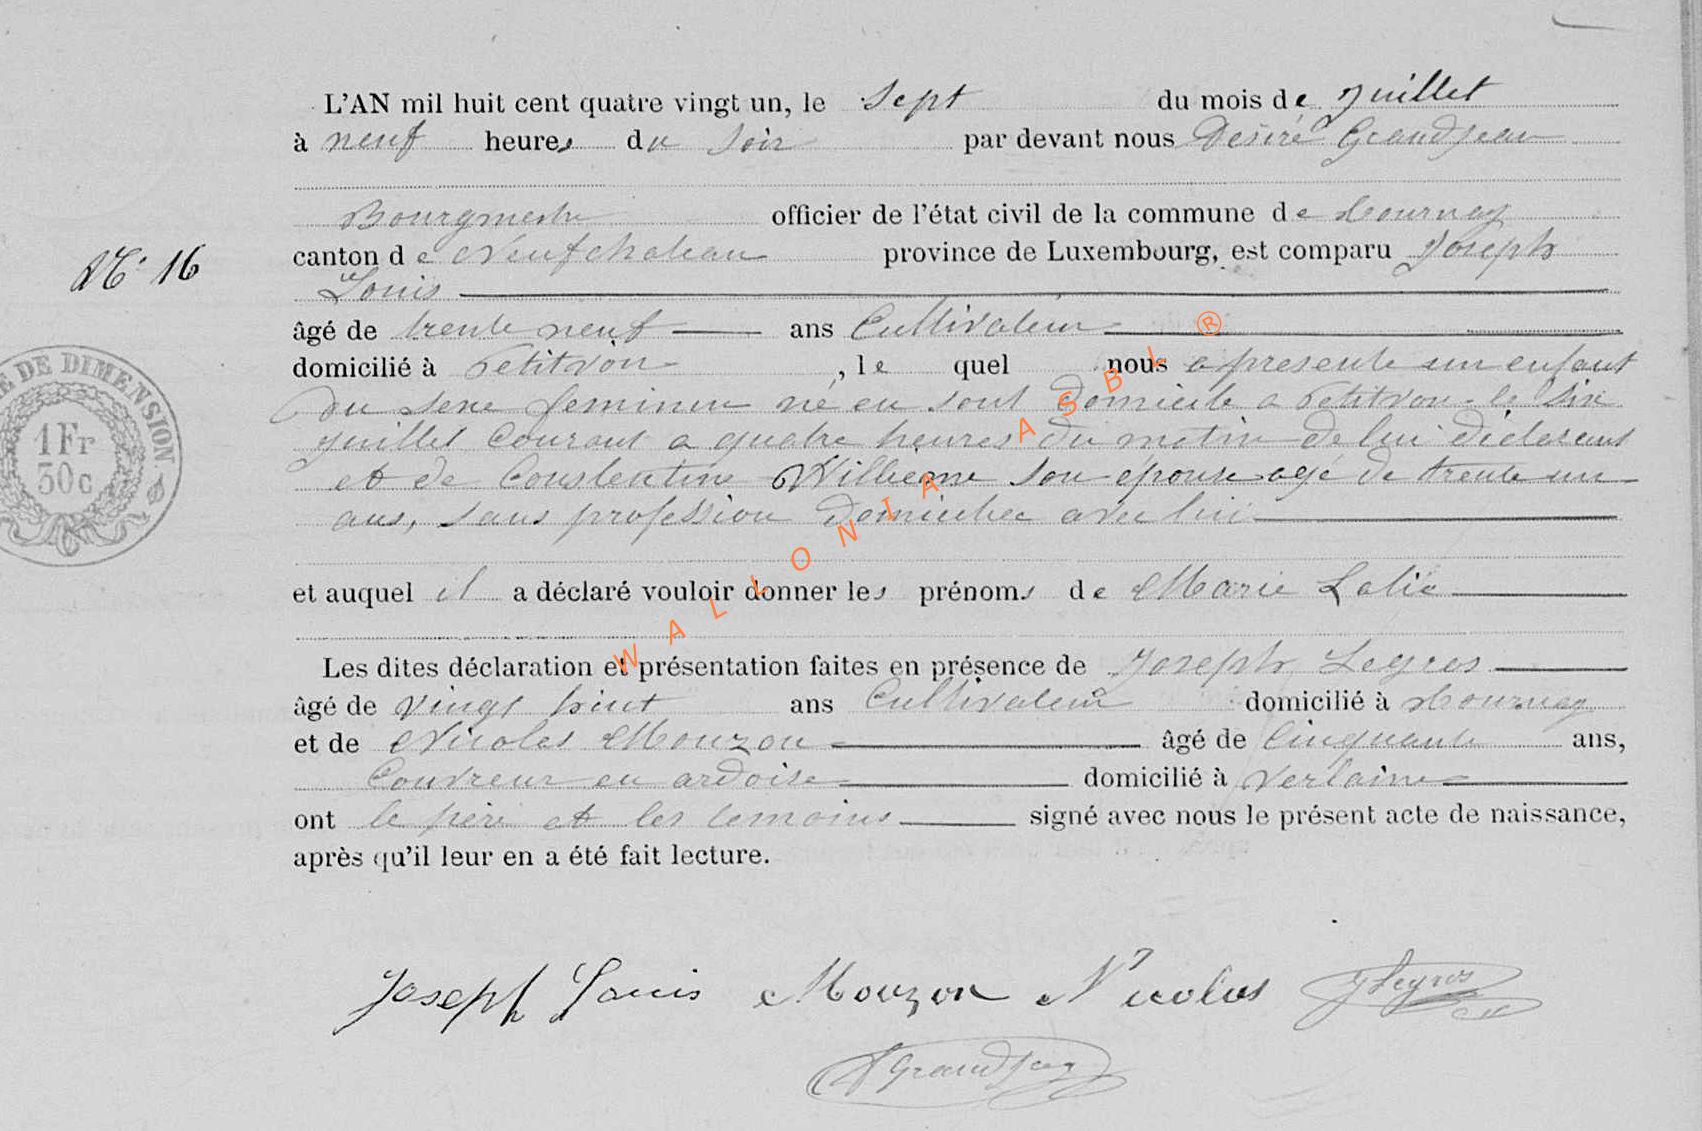 L'AN mil huit cent quatre vingt un, le sept du mois de Juillet
à neuf heures du soir par devant nous Désiré Grandjean
Bourgmestre officier de l'état civil de la commune de Tournay
canton de Neufchateau province de Luxembourg, est comparu Joseph
Nº 16
Louis
âgé de trente neuf ans Cultivateur
domicilié à Petitvoir, le quel nous a presente un enfant
du sexe feminin né en sont domicile a Petitvoir le six
juillet courant a quatre heures du matin de lui déclarant
et de Constentine Willieme son epouse agé de trente un
ans, sans profession domiciliee avec lui
et auquel il a déclaré vouloir donner les prénoms de Marie Lalie
Les dites déclaration et présentation faites en présence de Joseph Legros
âgé de vingt huit ans Cultivateur domicilié à Tournay
et de Nicolas Mouzon âgé de Cinquante ans,
Couvreur en ardoise domicilié à Verlaine
ont le père et les temoins signé avec nous le présent acte de naissance,
après qu'il leur en a été fait lecture.
Joseph Louis Mouzon Nicolas J Legros
D Grandjean
E DE DIMENSION
1 Fr
30 c
WALLONIA ASBL ®